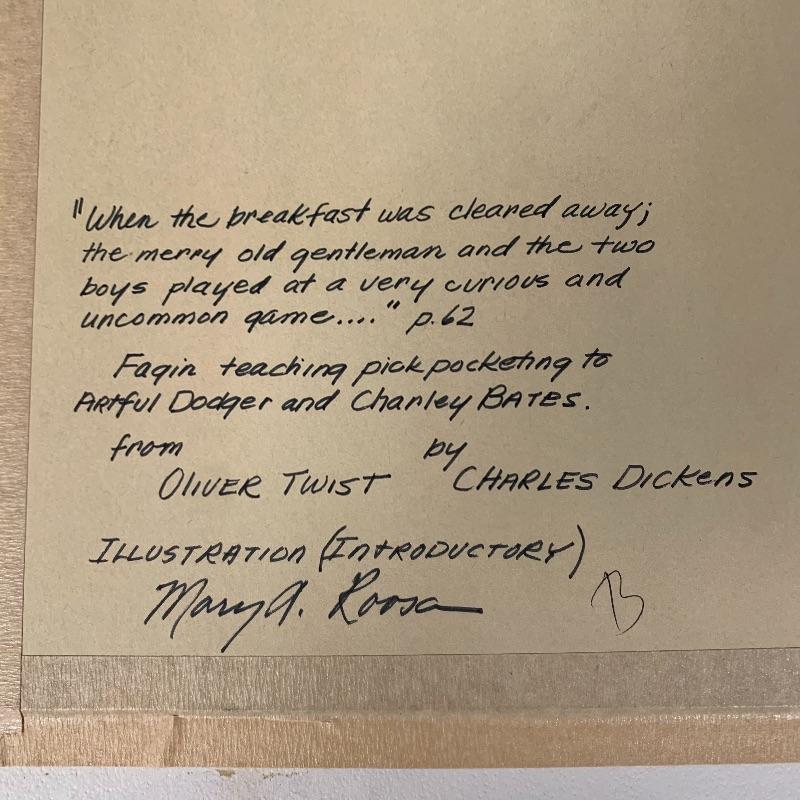 "When the breakfast was cleared away;
the merry old gentleman and the two
boys played at a very curious and
uncommon game...." p.62
Fagin teaching pickpocketing to
Artful Dodger and Charley BATES.
from by
OLIVER TWIST CHARLES DICKENS
ILLUSTRATION (INTRODUCTORY)
Mary A. Roosa
B